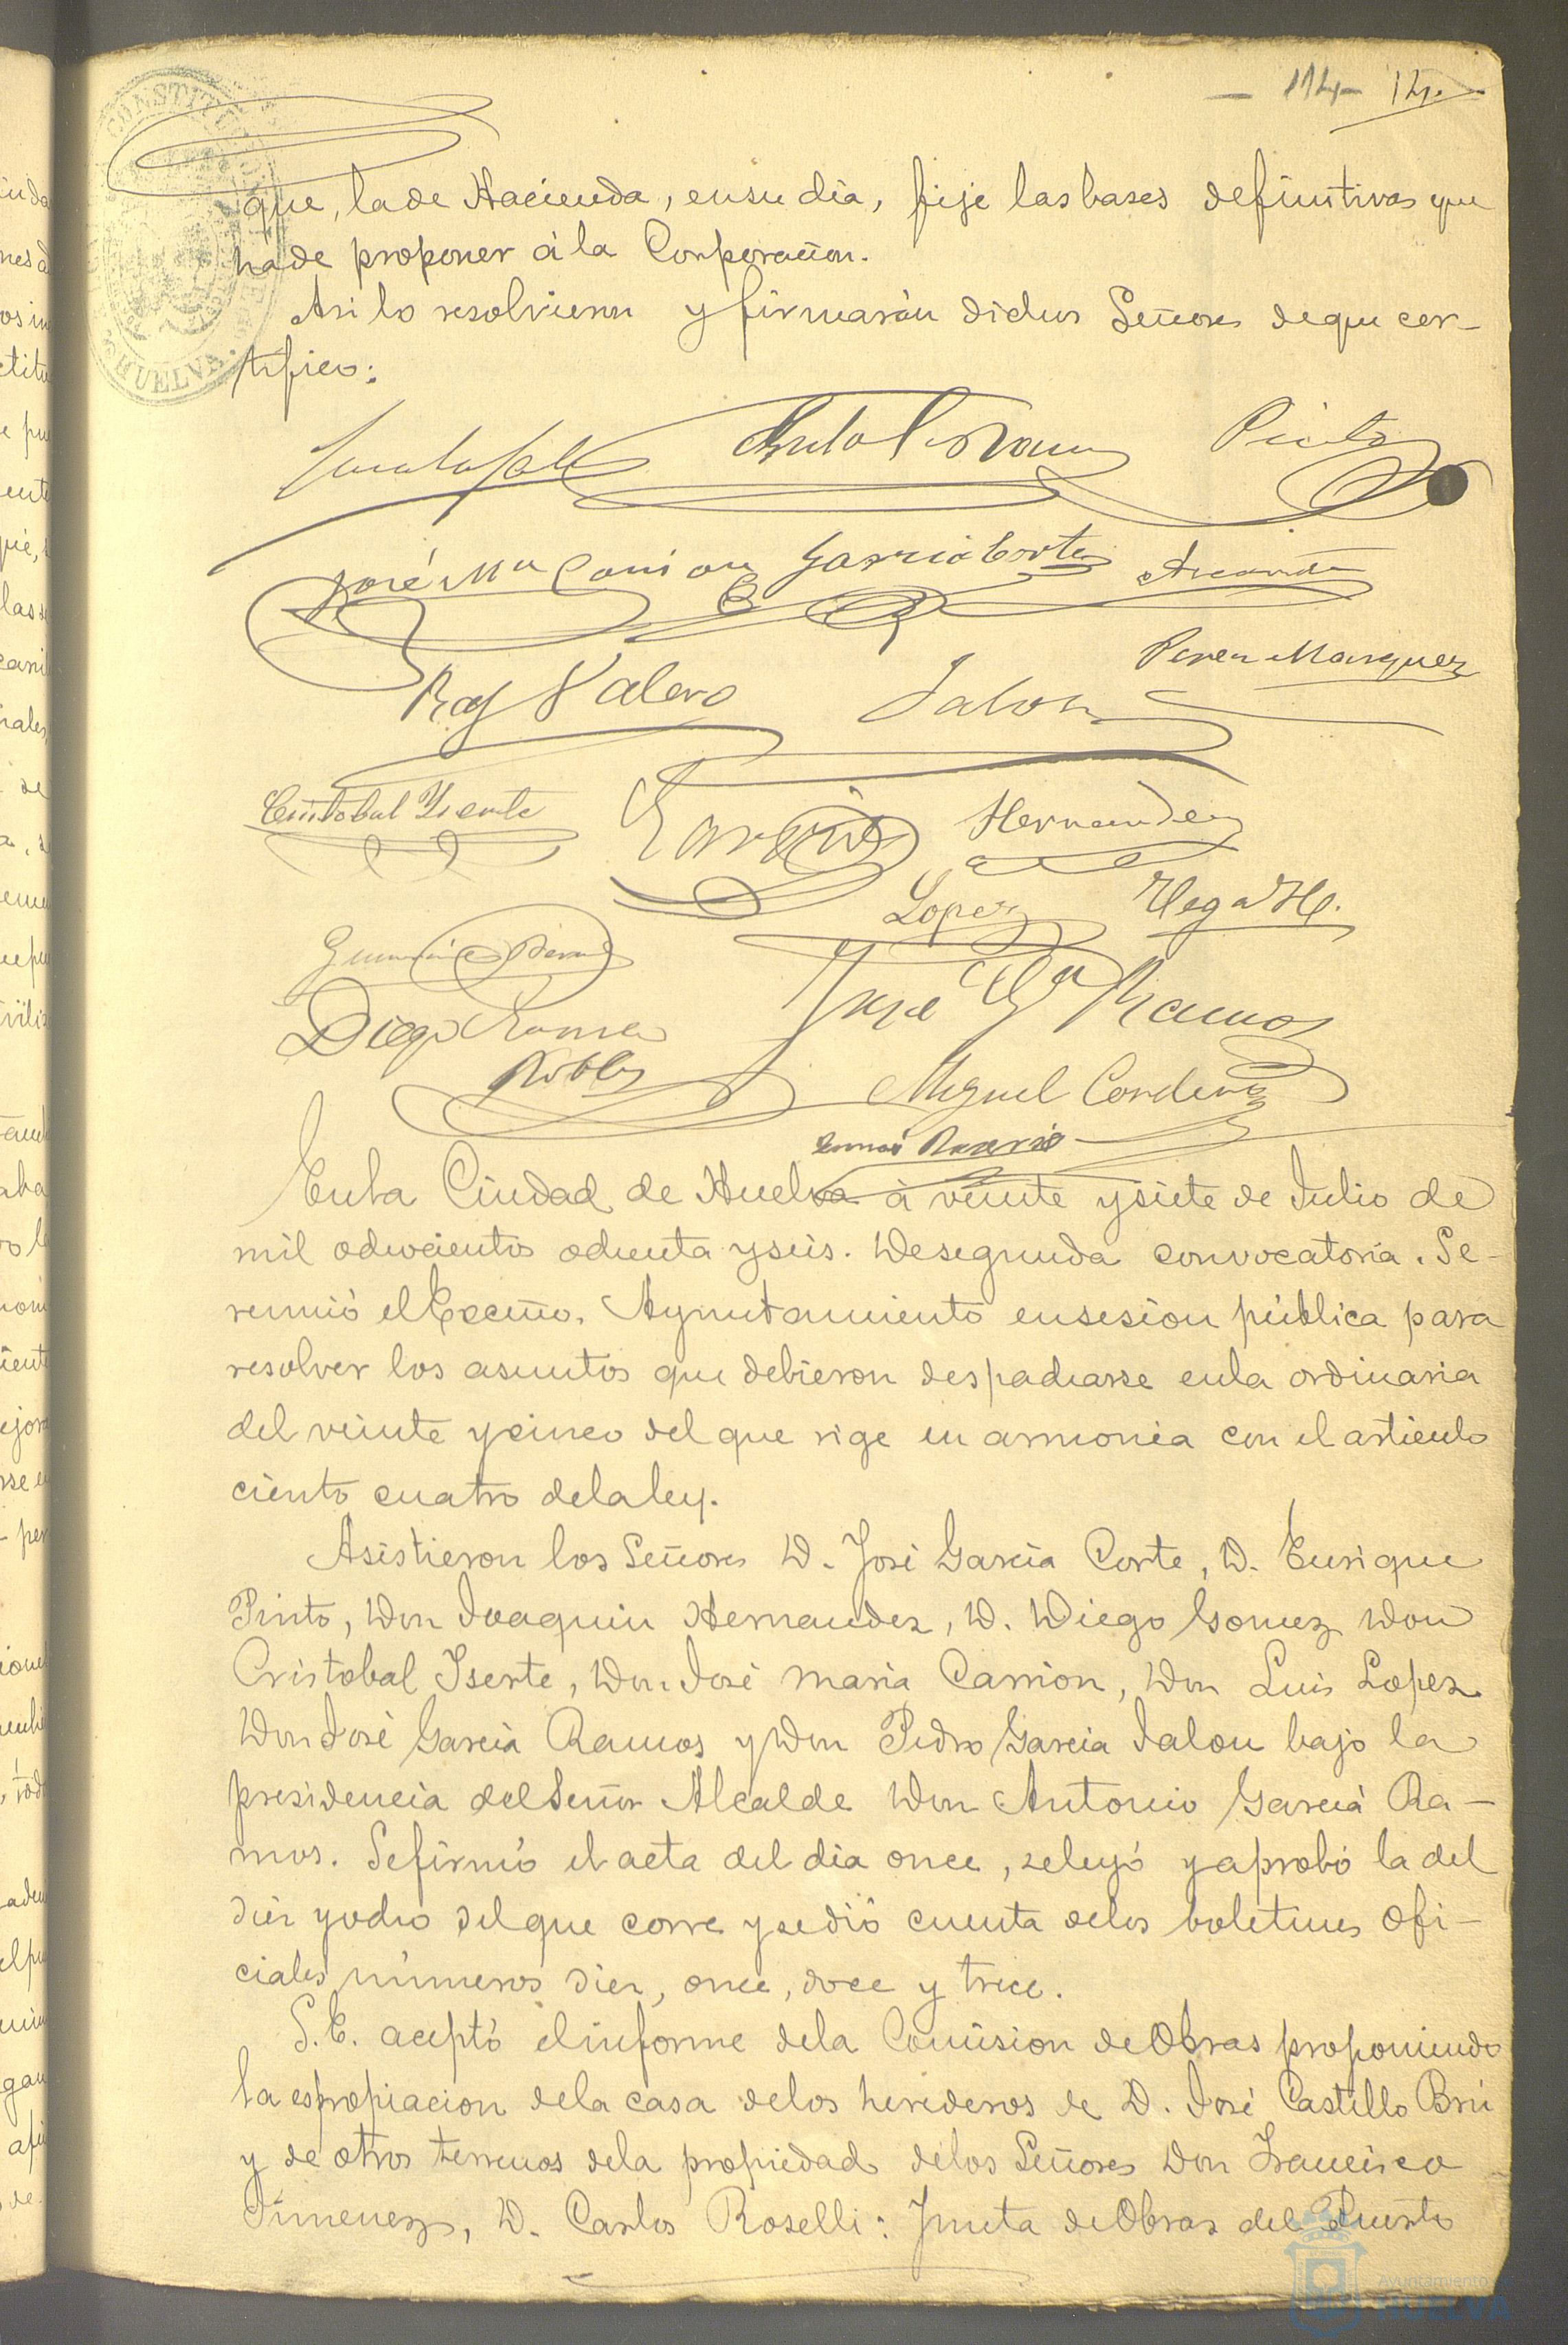 - 114 - 14.
que, la de Hacienda, en su dia, fije las bases definitivas que
ha de proponer á la Corporacion.
Asi lo resolvieron y firmarán dichos Señores de que cer-
tifico:
Pinto
José Mª Carrion Garcia Corte
Raf Valero Jalon Perez Marquez
Cristobal Iserte Hernandez
Lopez Vega H.
Diego Gomez José Gª Ramos
Robles Miguel Cordero
En la Ciudad de Huelva á veinte y siete de Julio de
mil ochocientos ochenta y seis. De segunda convocatoria. Se
reunió el Excmo. Ayuntamiento en sesion pública para
resolver los asuntos que debieron despacharse en la ordinaria
del veinte y cinco del que rige en armonia con el articulo
ciento cuatro de la ley.
Asistieron los Señores D. José Garcia Corte, D. Enrique
Pinto, Don Joaquin Hernandez, D. Diego Gomez Don
Cristobal Iserte, Don José Maria Carrion, Don Luis Lopez
Don José Garcia Ramos y Don Pedro Garcia Jalon bajo la
presidencia del Señor Alcalde Don Antonio Garcia Ra-
mos. Se firmó el acta del dia once, se leyó y aprobó la del
diez y ocho del que corre y se dió cuenta de los boletines ofi-
ciales números diez, once, doce y trece.
S.E. aceptó el informe de la Comision de Obras proponiendo
la espropiacion de la casa de los herederos de D. José Castillo Brú
y de otros terrenos de la propiedad de los Señores Don Francisco
Jimenez, D. Carlos Roselli: Junta de Obras del Puerto
Ayuntamiento
HUELVA